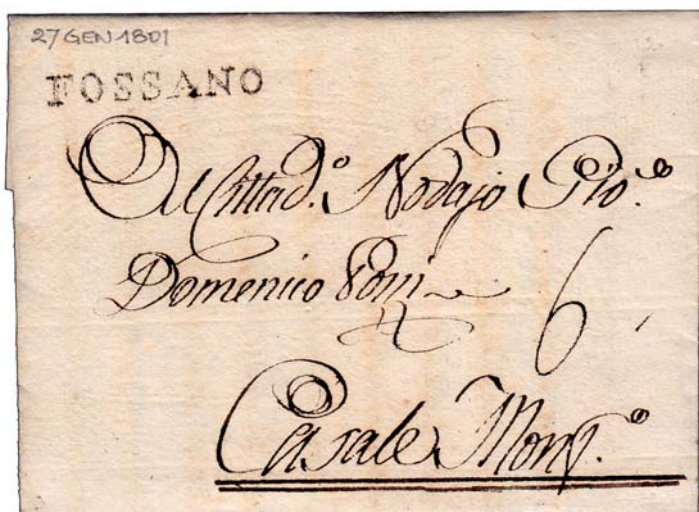 27 GEN 1801
FOSSANO
Al Cittad.º Nodajo Gio.
Domenico
6
Casale Monf.º